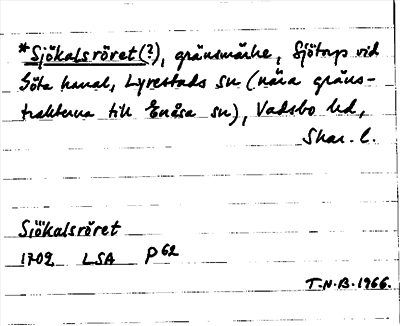 *Sjökalsröret(?), gränsmärke, Sjötorp vid
Göta kanal, Lyrestads sn (nära gräns-
trakterna till Enåsa sn), Vadsbo hd,
Skar. l.
Sjökalsröret
1709 LSA P 62
T.N.B. 1966.